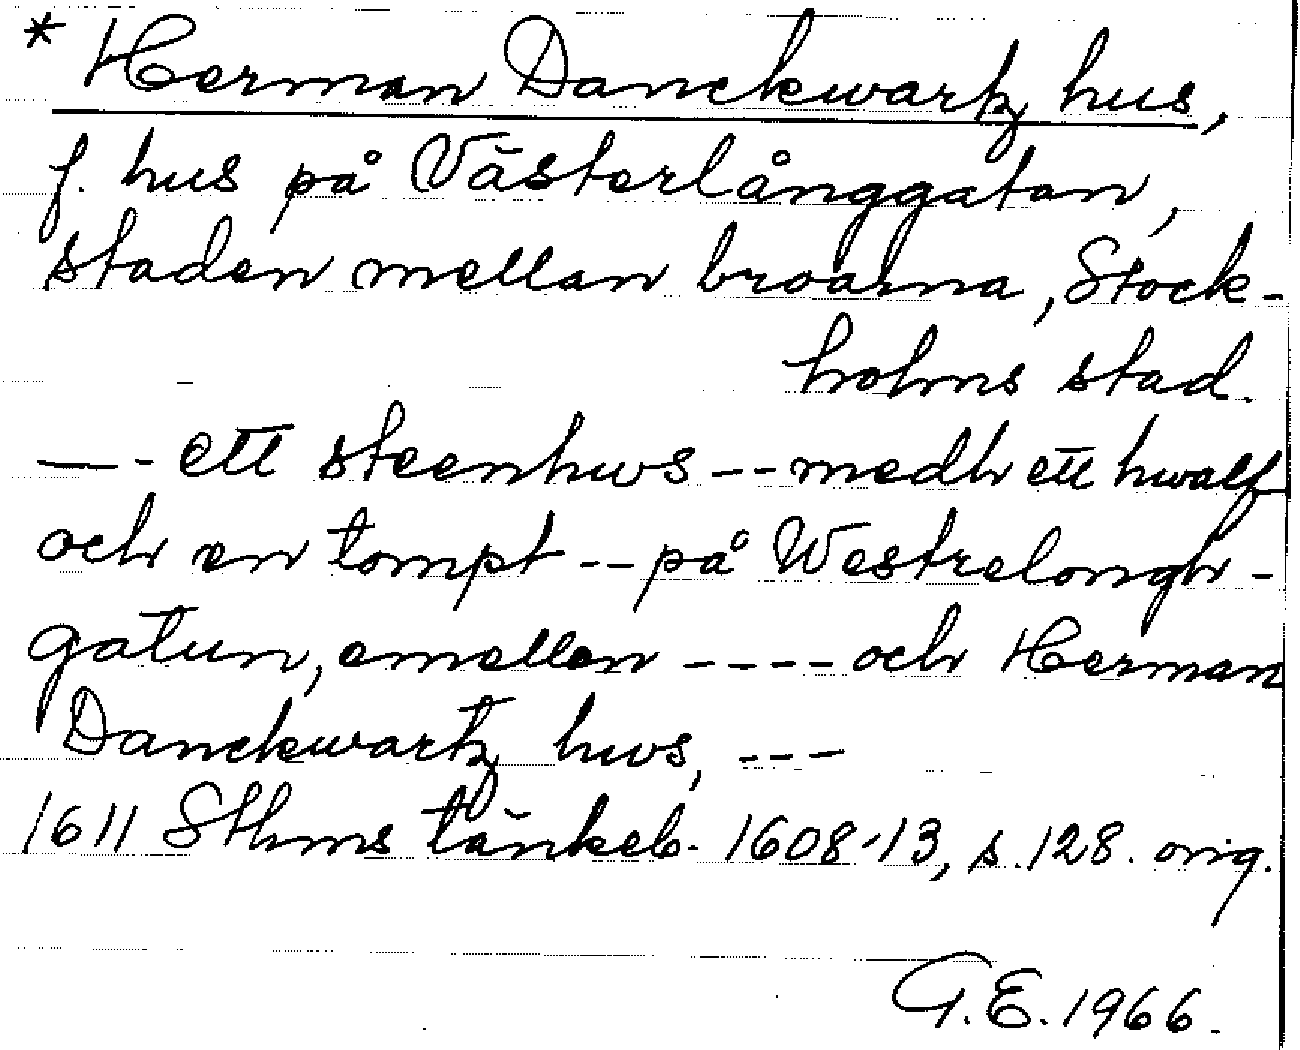 * Herman Danckwartz hus,
f. hus på Västerlånggatan,
staden mellan broarna, Stock-
holms stad.
--- ett steenhws -- medh ett hwalf
och en tompt -- på Westrelongh-
gatun, emellen ---- och Herman
Danckwartz hws, ---
1611 Sthms tänkeb. 1608-13, s. 128. orig.
G.E. 1966.